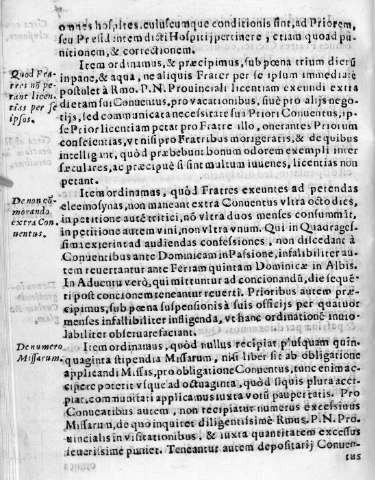 omnes hospites, cuiuscumque conditionis sint, ad Priorem,
seu Presidentem dicti Hospitij pertinere, etiam quoad pu-
nitionem, & correctionem.
Quod Fra-
tres nõ pe-
tant licen-
tias per se
ipsos.
Item ordinamus, & præcipimus, sub pœna trium dierũ
in pane, & aqua, ne aliquis Frater per se ipsum immediatè
postulet à Rmo. P. N. Prouinciali licentiam exeundi extra
dietam sui Conuentus, pro vacationibus, siuè pro alijs nego-
tijs, sed communicata necessitate sui Priori Conuentus, ip-
se Prior licentiam petat pro Fratre illo, onerantes Priorum
conscientias, vt nisi pro Fratribus morigeratis, & de quibus
intelligant, quòd præbebunt bonum odorem exempli inter
sæculares, ac præcipuè si sint multum iuuenes, licentias non
petant.
De non cõ-
morando
extra Con-
uentus.
Item ordinamus, quòd Fratres exeuntes ad petendas
eleemosynas, non maneant extra Conuentus vltra octo dies,
in petitione autẽ tritici, nõ vltra duos menses consummẽt,
in petitione autem vini, non vltra vnum. Qui in Quadrages-
sima exierint ad audiendas confessiones, non discedant à
Conuentibus ante Dominicam in Passione, infalibiliter au-
tem reuertantur ante Feriam quintam Dominicæ in Albis.
In Aduentu verò, qui mittuntur ad concionandũ, die sequẽ-
ti post concionem teneantur reuerti. Prioribus autem præ-
cipimus, sub pœna suspensionis à suis officijs per quatuor
menses infallibiliter infligenda, vt hanc ordinationẽ inuio-
labiliter obseruare faciant.
De numero
Missarum.
Item ordinamus, quòd nullus recipiat plusquam quin-
quaginta stipendia Missarum, nisi liber sit ab obligatione
applicandi Missis, pro obligatione Conuentus, tunc enim ac-
cipere poterit vsque ad octuaginta, quòd siquis plura acce-
piat, communitati applicamus iuxta votũ paupertatis. Pro
Conuentibus autem, non recipiatur numerus excessiuus
Missarum, de quo inquiret diligentissimè Rmus. P. N. Pro-
uincialis in visitationibus, & iuxta quantitatem excessus
seuerissimè puniet. Teneantur autem depositarij Conuen-
tus